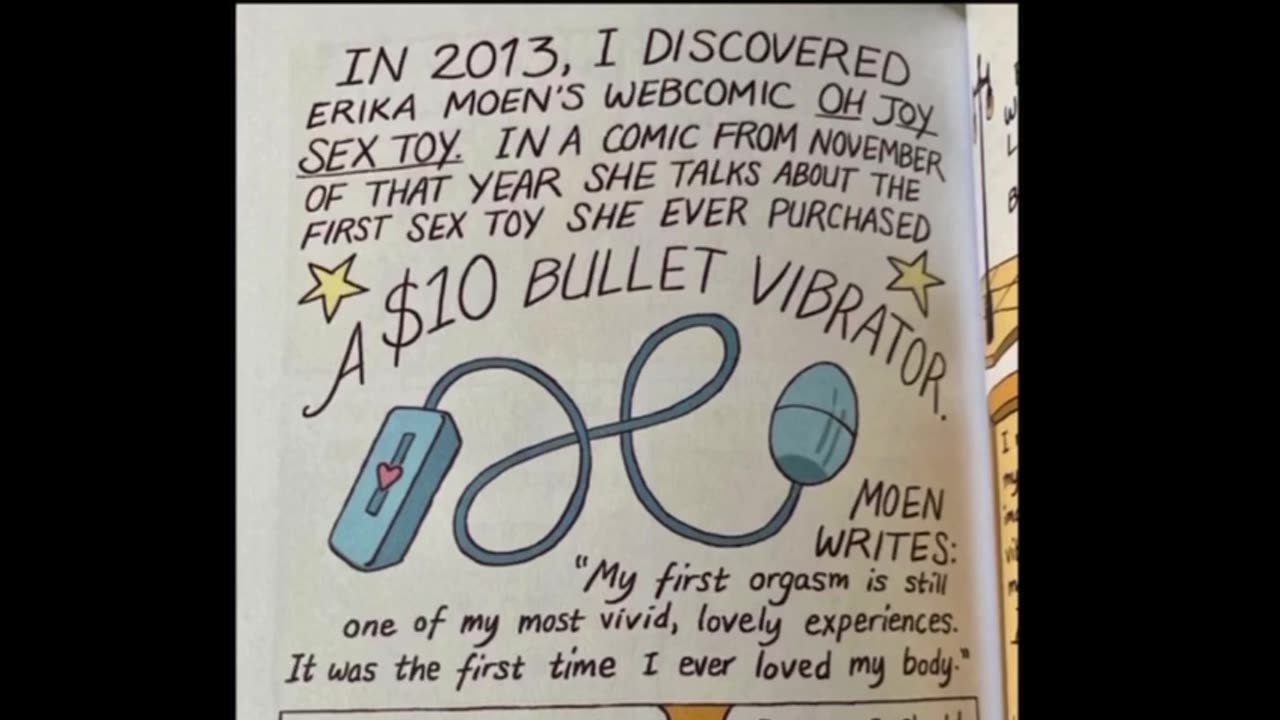 IN 2013, I DISCOVERED
ERIKA MOEN'S WEBCOMIC OH JOY
SEX TOY. IN A COMIC FROM NOVEMBER
OF THAT YEAR SHE TALKS ABOUT THE
FIRST SEX TOY SHE EVER PURCHASED
A $10 BULLET VIBRATOR.
MOEN
WRITES:
"My first orgasm is still
one of my most vivid, lovely experiences.
It was the first time I ever loved my body."